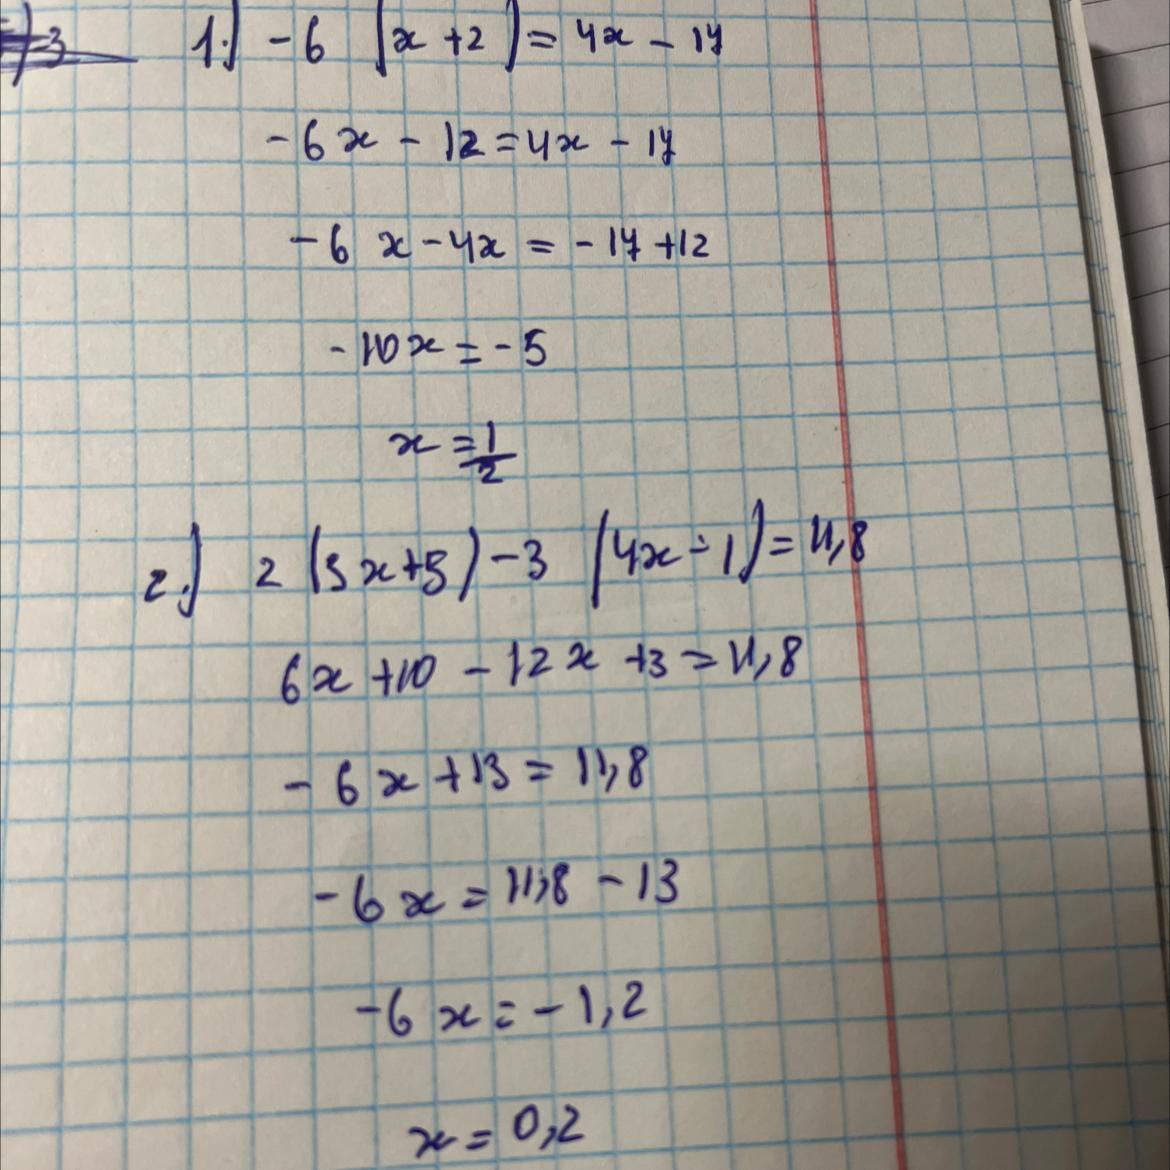 1.) -6 (x+2) = 4x - 17
-6x - 12 = 4x - 17
-6x - 4x = -17 + 12
-10x = -5
x = 1/2
2.) 2 (3x+5) - 3 (4x - 1) = 11,8
6x + 10 - 12x + 3 = 11,8
-6x + 13 = 11,8
-6x = 11,8 - 13
-6x = -1,2
x = 0,2